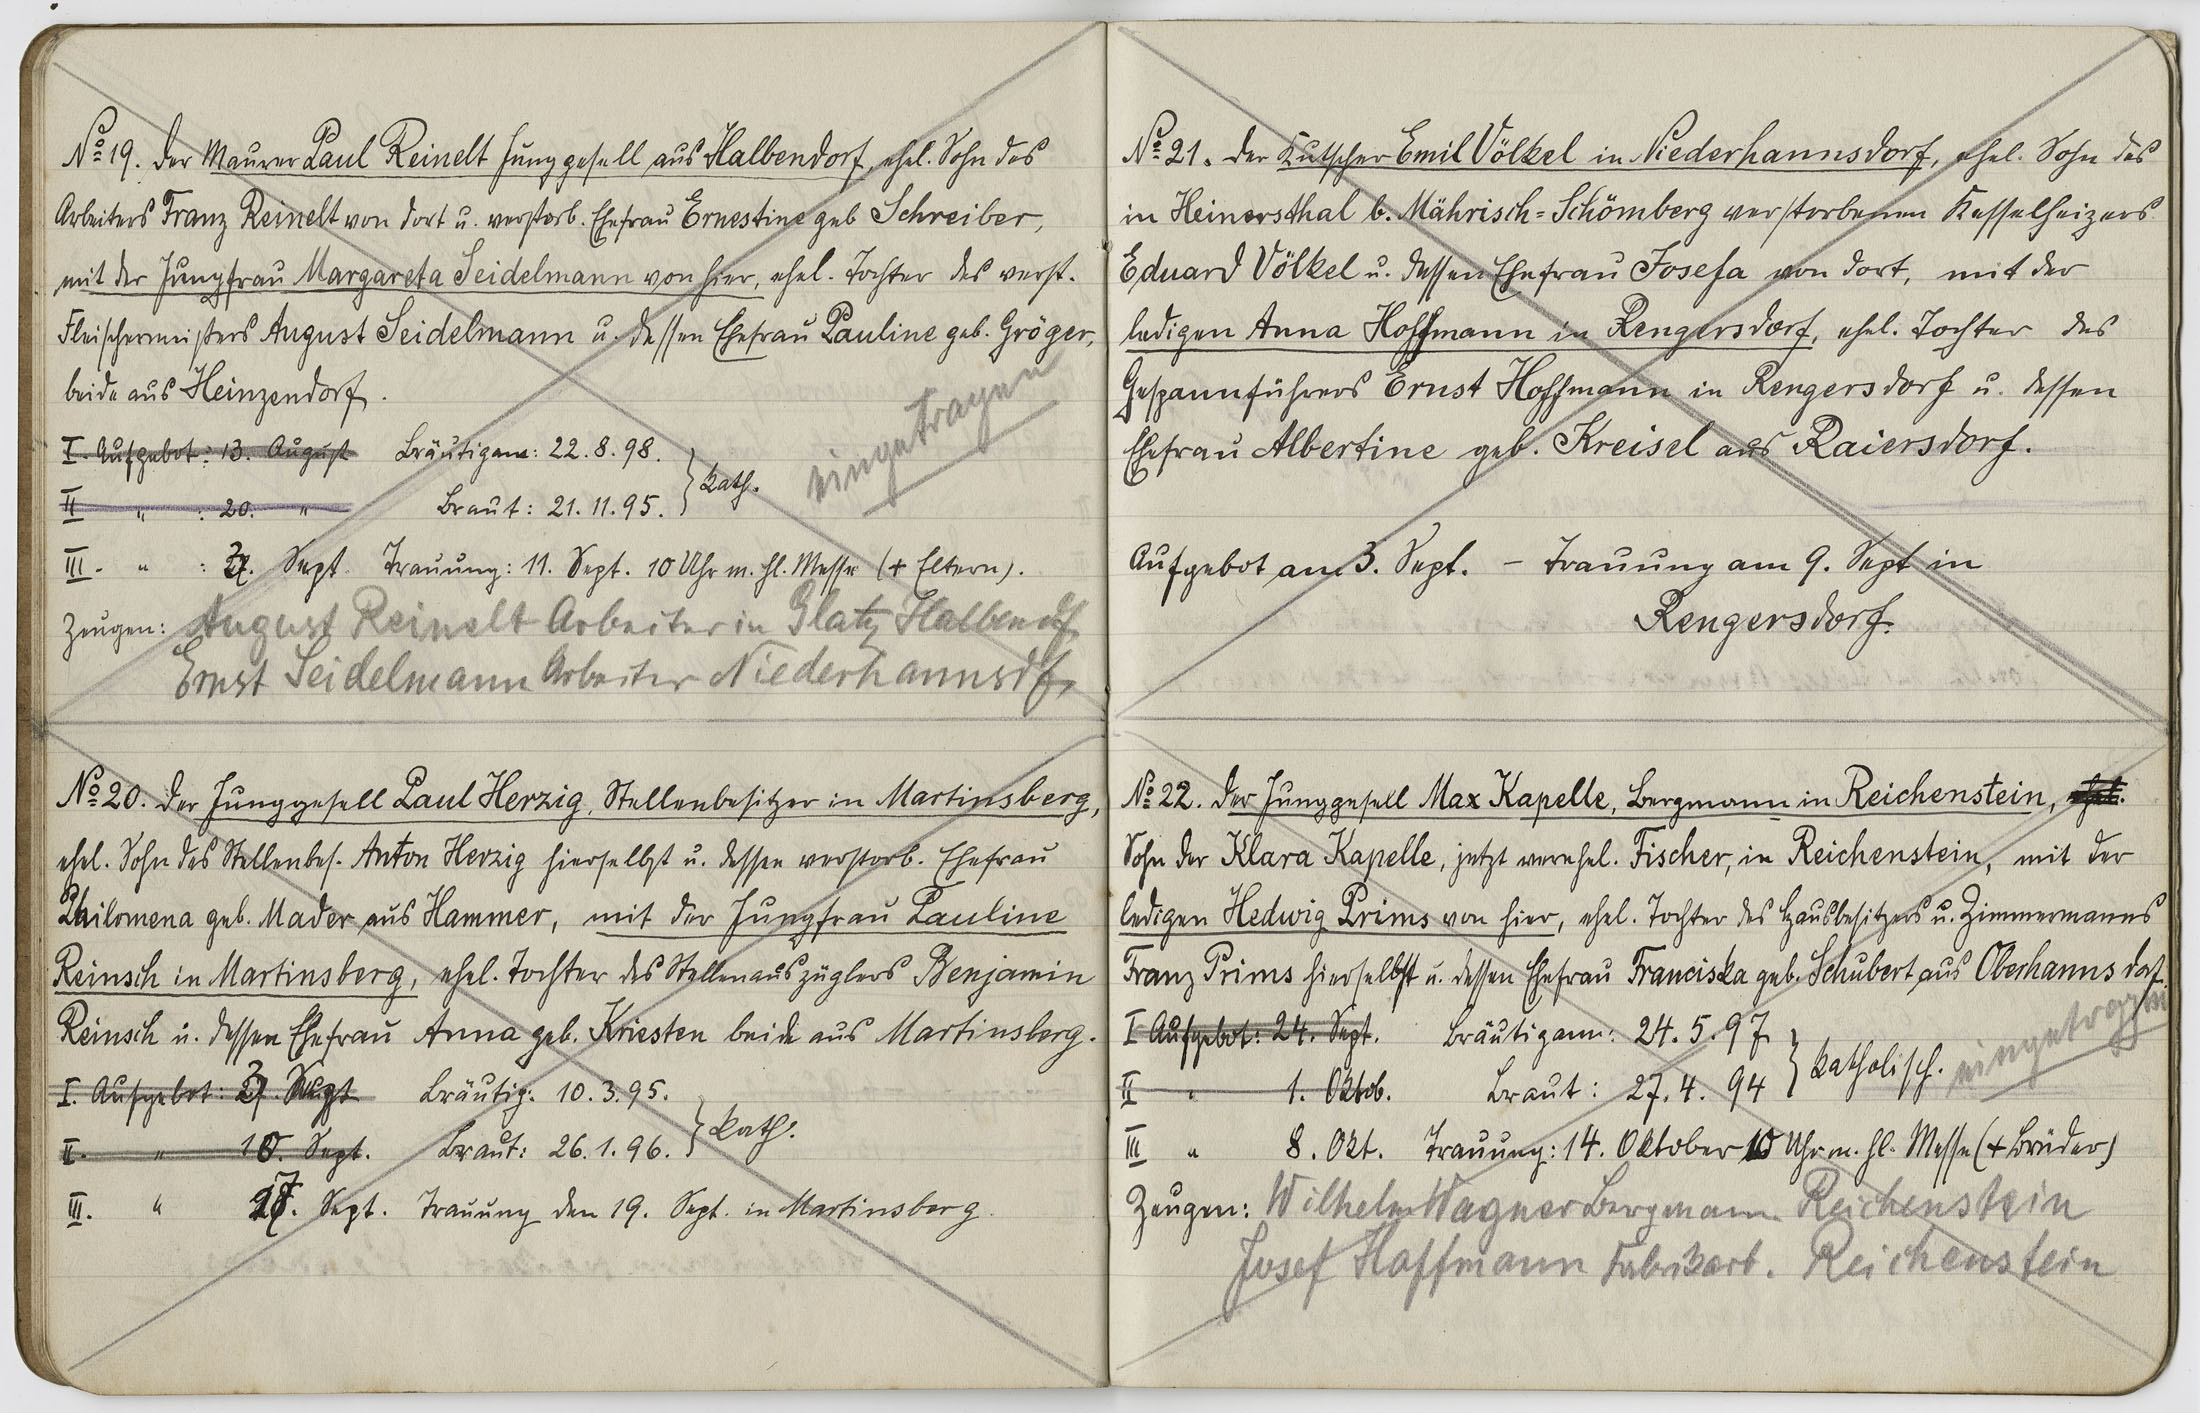 No 19. Der Maurer Paul Reinelt Junggesell aus Halbendorf, ehel. Sohn des
Arbeiters Franz Reinelt von dort u. verstorb. Ehefrau Ernestine geb Schreiber,
mit der Jungfrau Margareta Seidelmann von hier, ehel. Tochter des verst.
Fleischermeisters August Seidelmann u. dessen Ehefrau Pauline geb. Gröger,
beide aus Heinzendorf.
eingetragen
I. Aufgebot: 13. August Bräutigam: 22.8.98.
II " : 20. " Braut: 21.11.95. } kath.
III. " : 3. Sept. Trauung: 11. Sept. 10 Uhr m. hl. Messe (+ Eltern).
Zeugen: August Reinelt Arbeiter in Glatz Halbendf
Ernst Seidelmann Arbeiter Niederhannsdf
No 20. Der Junggesell Paul Herzig, Stellenbesitzer in Martinsberg,
ehel. Sohn des Stellenbes. Anton Herzig hierselbst u. dessen verstorb. Ehefrau
Philomena geb. Mader aus Hammer, mit der Jungfrau Pauline
Reinsch in Martinsberg, ehel. Tochter des Stellenauszüglers Benjamin
Reinsch u. dessen Ehefrau Anna geb. Kriesten beide aus Martinsberg.
I. Aufgebot: 3. Sept Bräutig: 10.3.95.
II. " 10. Sept. Braut: 26.1.96. } kath.
III. " 17. Sept. Trauung den 19. Sept. in Martinsberg.
No 21. Der Kutscher Emil Völkel in Niederhannsdorf, ehel. Sohn des
in Heinersthal b. Mährisch=Schömberg verstorbenen Kesselheizers
Eduard Völkel u. dessen Ehefrau Josefa von dort, mit der
ledigen Anna Hoffmann in Rengersdorf, ehel. Tochter des
Gespannführers Ernst Hoffmann in Rengersdorf u. dessen
Ehefrau Albertine geb. Kreisel aus Raiersdorf.
Aufgebot am 3. Sept. - Trauung am 9. Sept in
Rengersdorf.
No 22. Der Junggesell Max Kapelle, Bergmann in Reichenstein, ehel.
Sohn der Klara Kapelle, jetzt verehel. Fischer, in Reichenstein, mit der
ledigen Hedwig Prims von hier, ehel. Tochter des Hausbesitzers u. Zimmermanns
Franz Prims hierselbst u. dessen Ehefrau Franciska geb. Schubert aus Oberhannsdorf.
I Aufgebot: 24. Sept. Bräutigam: 24.5.97
II " 1. Oktob. Braut: 27.4.94 } katholisch. eingetragen
III " 8. Okt. Trauung: 14. Oktober 10 Uhr m. hl. Messe (+ Brüder)
Zeugen: Wilhelm Wagner Bergmann Reichenstein
Josef Hoffmann Fabrikarb. Reichenstein